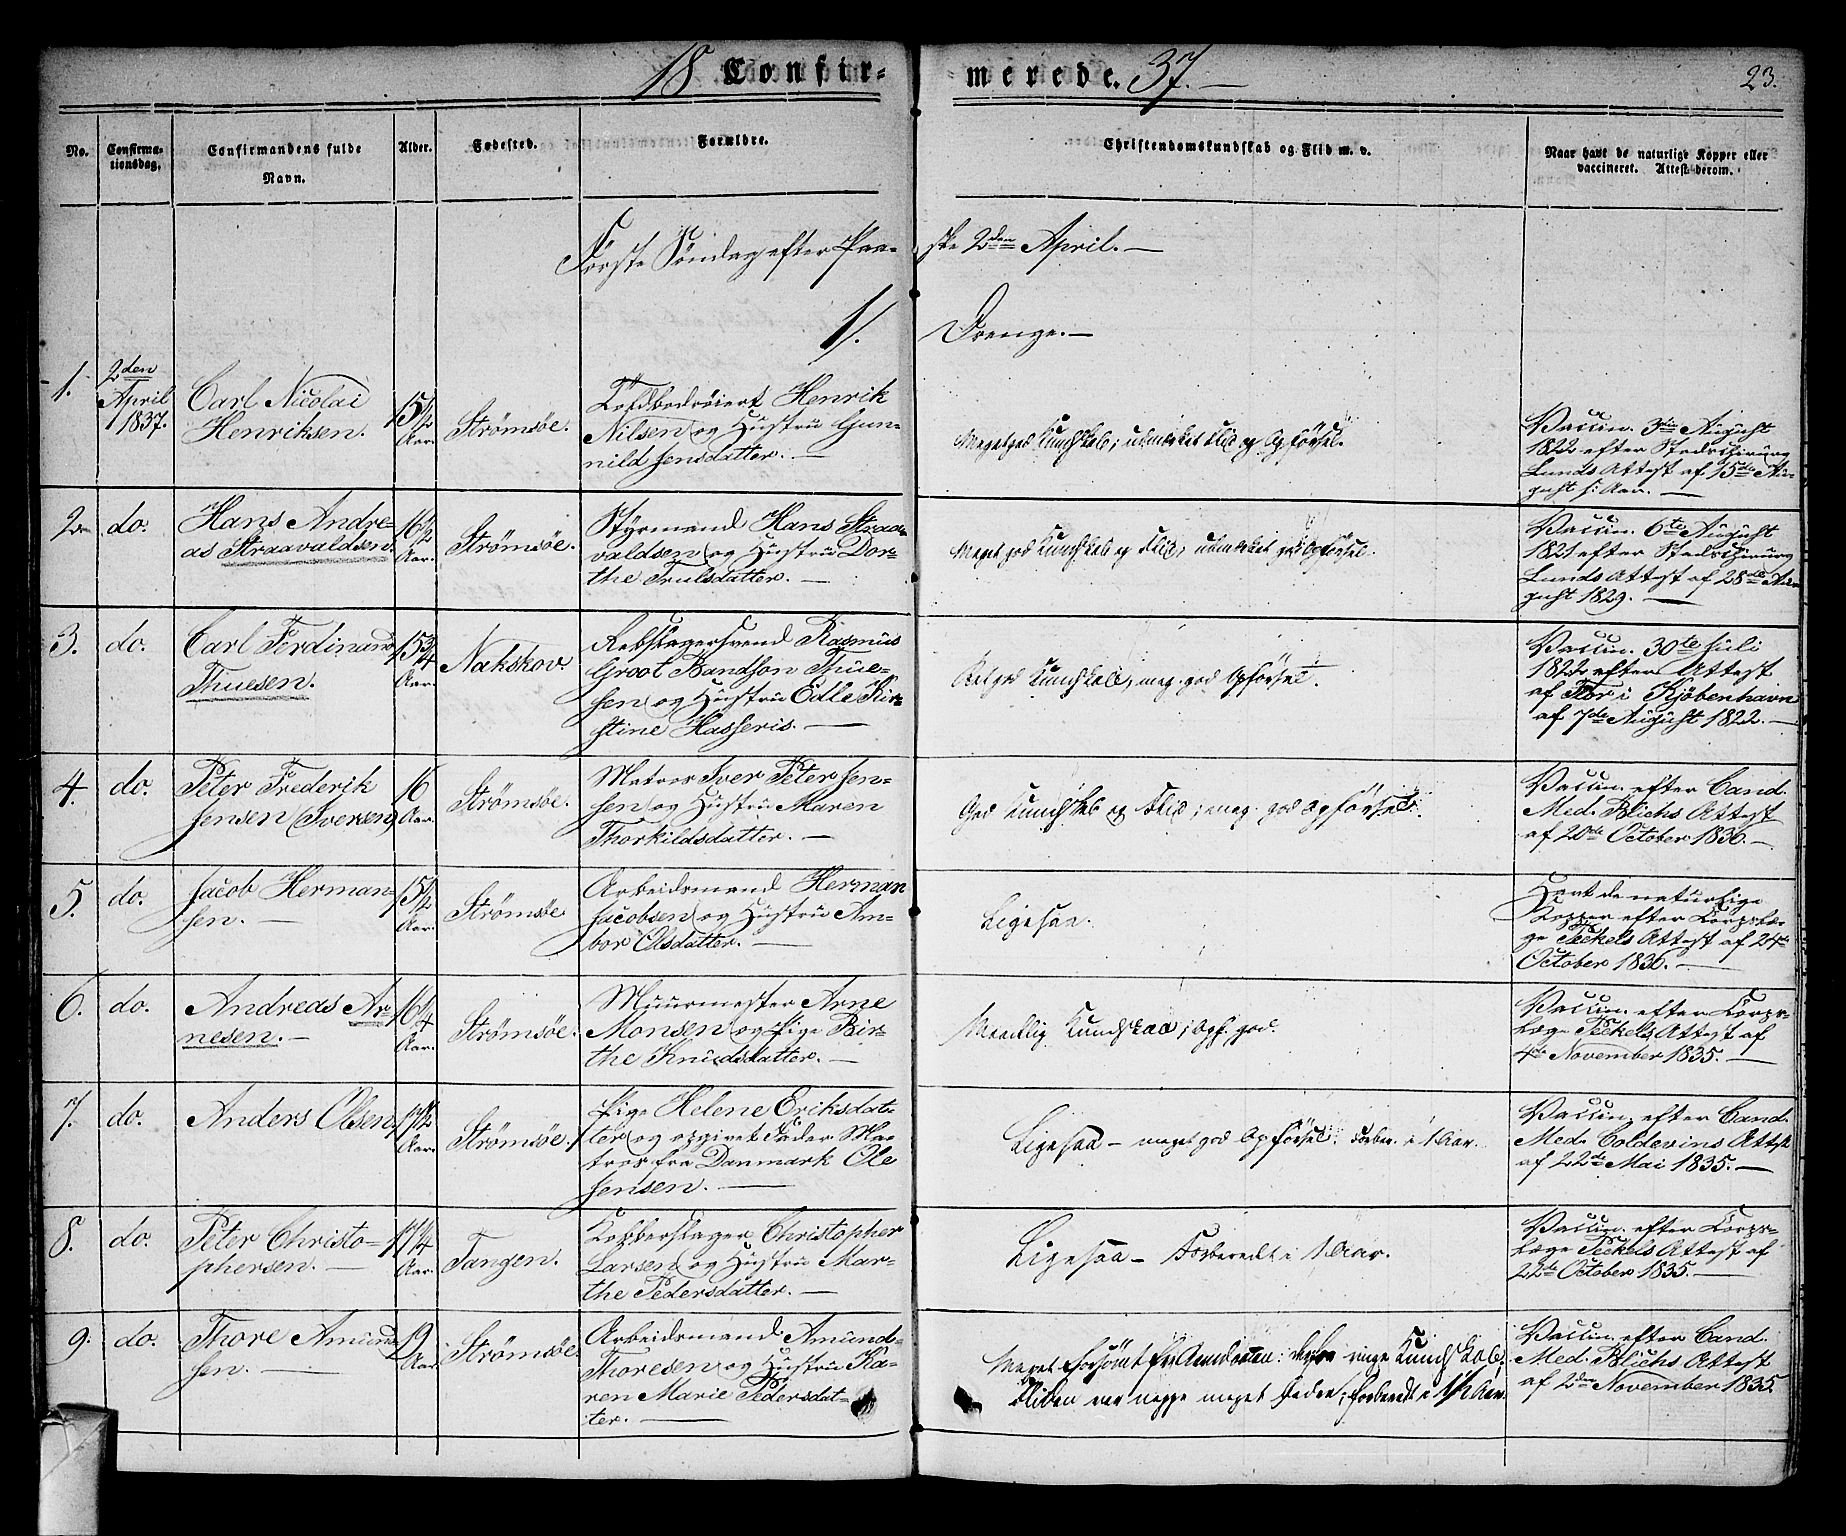 18 Confir-
merede. 37.
23.
No.
Confirma-
tionsdag.
Confirmandens fulde
Navn.
Alder.
Fødested.
Forældre.
Christendomskundskab og Flid m. v.
Naar havt de naturlige Kopper eller
vaccineret. Attest derom.
Første Søndag efter Paa-
ske 2den April.
1/. Drenge.
1.
2den
April
1837.
Carl Nicolai
Henriksen.
15 1/2
Aar.
Strömsöe.
Henrik
Nilsen og Hustru Gun-
nild Jensdatter.
Meget god Kundskab; udmærket Flid og Opførsel.
Vaccin. 3die August
1822 efter Stadschirurg
Lunds Attest af 15de Au-
gust s: Aar.
2.
do.
Hans Andre-
as Straavaldsen.
16 1/2
Aar.
Strömsöe.
Styrmand Hans Straa-
valdsen og Hustru Dor-
the Trulsdatter.
Meget god Kundskab og Flid, udmærket god Opførsel.
Vaccin. 6te August
1821 efter Stadschirurg
Lunds Attest af 28de Au-
gust 1829.
3.
do.
Carl Ferdinand
Thuesen.
15 3/4
Aar.
Nakskov.
Rebslagersvend Rasmus
Groot Bandson Thue-
sen og Hustru Edle Kir-
stine Hasseris.
god Kundskab, meg. god Opførsel.
Vaccin. 30te Juli
1822 efter Attest
af Flor i Kjøbenhavn
af 7de August 1822.
4.
do.
Peter Frederik
Jensen (Iversen)
16
Aar.
Strömsöe.
Matros Iver Peter Jen-
sen og Hustru Maren
Thorkildsdatter.
God Kundskab og Flid; meg. god Opførsel.
Vaccin. efter Cand.
Med. Blichs Attest
af 20de October 1836.
5.
do.
Jacob Herman-
sen.
15 1/2
Aar.
Strömsöe
Arbeidsmand Herman
Jacobsen og Hustru Am-
bor Olsdatter.
Ligesaa.
Havt de naturlige
Kopper efter Corpslæ-
ge Seckels Attest af 24de
October 1836.
6.
do.
Andreas Ar-
nesen.
16 1/4
Aar.
Strömsöe.
Muurmester Arne
Monsen og Pige Bir-
the Knudsdatter.
Maadelig Kundskab; Opf. god.
Vaccin. efter Corps-
læge Seckels Attest af
4de November 1835.
7.
do.
Anders Olsen
17 1/2
Aar.
Strömsöe.
Pige Helene Eriksdat-
ter og opgivet Fader Ma-
tros fra Danmark Ole
Jensen.
Ligesaa - meget god Opførsel. Forber. i 1 Aar.
Vaccin. efter Cand.
Med. Coldevins Attest
af 22de Mai 1835.
8.
do.
Peter Christo-
phersen.
17 1/4
Aar.
Tangen.
Kobberslager Christopher
Larsen og Hustru Mar-
the Pedersdatter.
Ligesaa - Forberedt i 1 Aar.
Vaccin. efter Corps-
læge Seckels Attest af
22de October 1835.
9.
do.
Thore Amund-
sen.
19
Aar
Strömsöe.
Arbeidsmand Amund
Thoresen og Hustru Ka-
ren Marie Pedersdat-
ter.
Meget forsømt fra Barndommen: derfor ringe Kundskab.
Fliden var neppe meget heller; forberedt i 1 1/2 Aar.
Vaccin. efter Cand.
Med. Blichs Attest
af 2den November 1835.